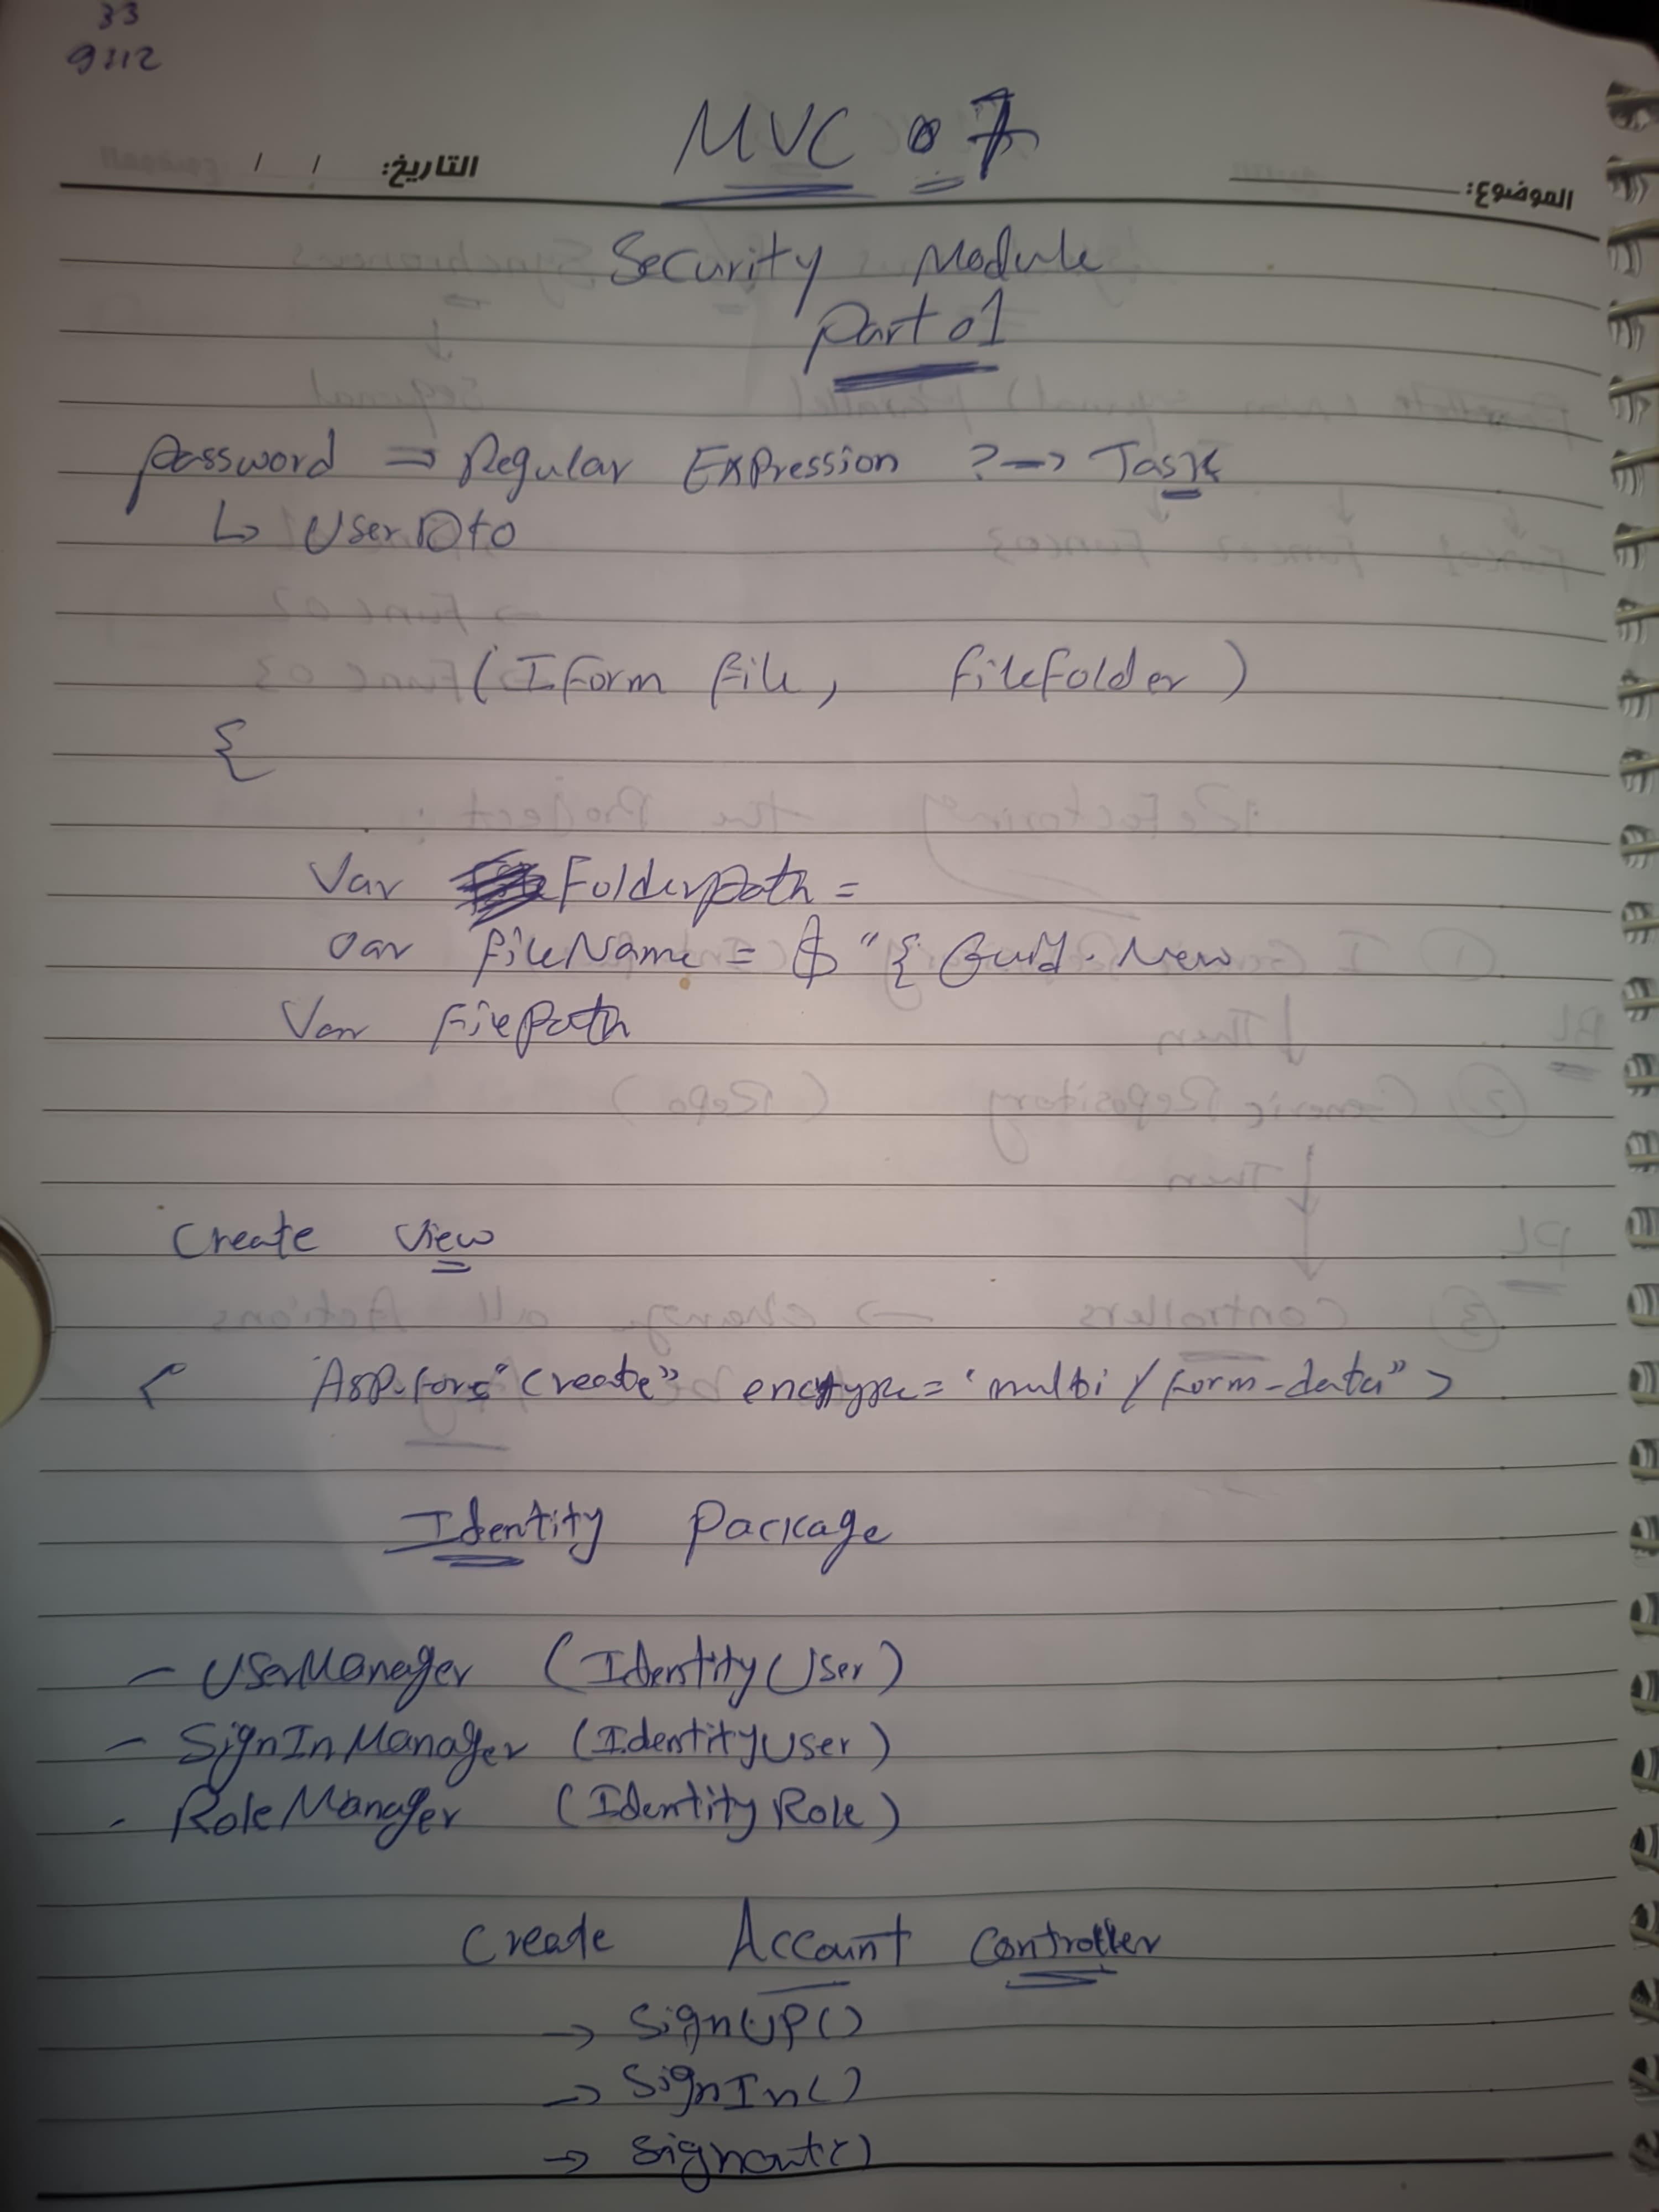 33
9:12
MVC 07
التاريخ: / /
الموضوع:
Security Module
Part 01
Password => Regular Expression ? -> Task
↳ UserDto
(IForm file, filefolder)
{
Var Folderpath =
Var fileName = $ "{ Guid. New
Var filepath
Create View
< Asp-for="Create" enctype= 'multi / form-data" >
Identity Package
- UserManager (IdentityUser)
- SignInManager (IdentityUser)
- RoleManager (IdentityRole)
Create Account Controller
-> SignUP()
-> SignIn()
-> Signout()